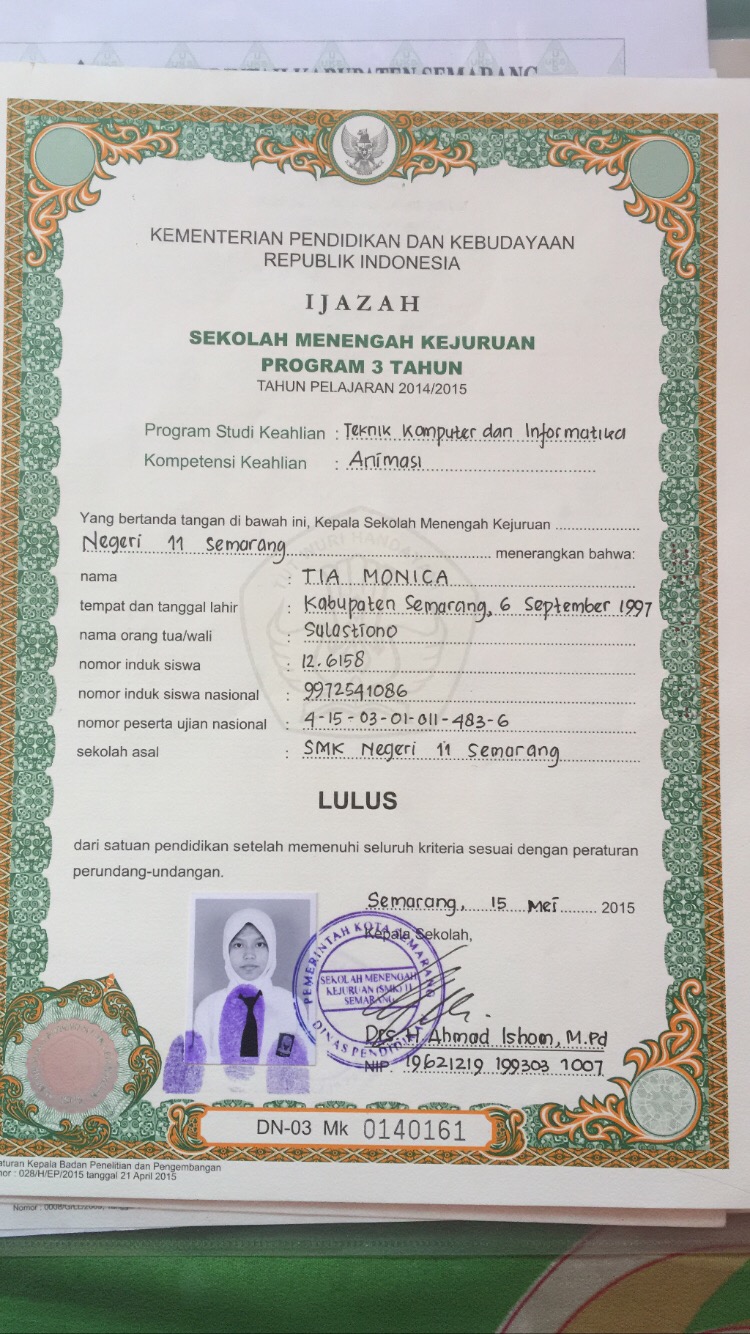 KABUPATEN SEMARANG
KEMENTERIAN PENDIDIKAN DAN KEBUDAYAAN
REPUBLIK INDONESIA
IJAZAH
SEKOLAH MENENGAH KEJURUAN
PROGRAM 3 TAHUN
TAHUN PELAJARAN 2014/2015
Program Studi Keahlian : Teknik Komputer dan Informatika
Kompetensi Keahlian : Animasi
Yang bertanda tangan di bawah ini, Kepala Sekolah Menengah Kejuruan
Negeri 11 Semarang menerangkan bahwa:
nama : TIA MONICA
tempat dan tanggal lahir : Kabupaten Semarang, 6 September 1997
nama orang tua/wali : Sulastiono
nomor induk siswa : 12.6158
nomor induk siswa nasional : 9972541086
nomor peserta ujian nasional : 4-15-03-01-011-483-6
sekolah asal : SMK Negeri 11 Semarang
LULUS
dari satuan pendidikan setelah memenuhi seluruh kriteria sesuai dengan peraturan
perundang-undangan.
Semarang, 15 Mei 2015
Kepala Sekolah,
PEMERINTAH KOTA SEMARANG
SEKOLAH MENENGAH
KEJURUAN (SMK) 11
SEMARANG
DINAS PENDIDIKAN
Drs. H Ahmad Ishom, M.Pd
NIP. 19621219 199303 1007
DN-03 Mk 0140161
Kepala Badan Penelitian dan Pengembangan
: 028/H/EP/2015 tanggal 21 April 2015
Nomor :